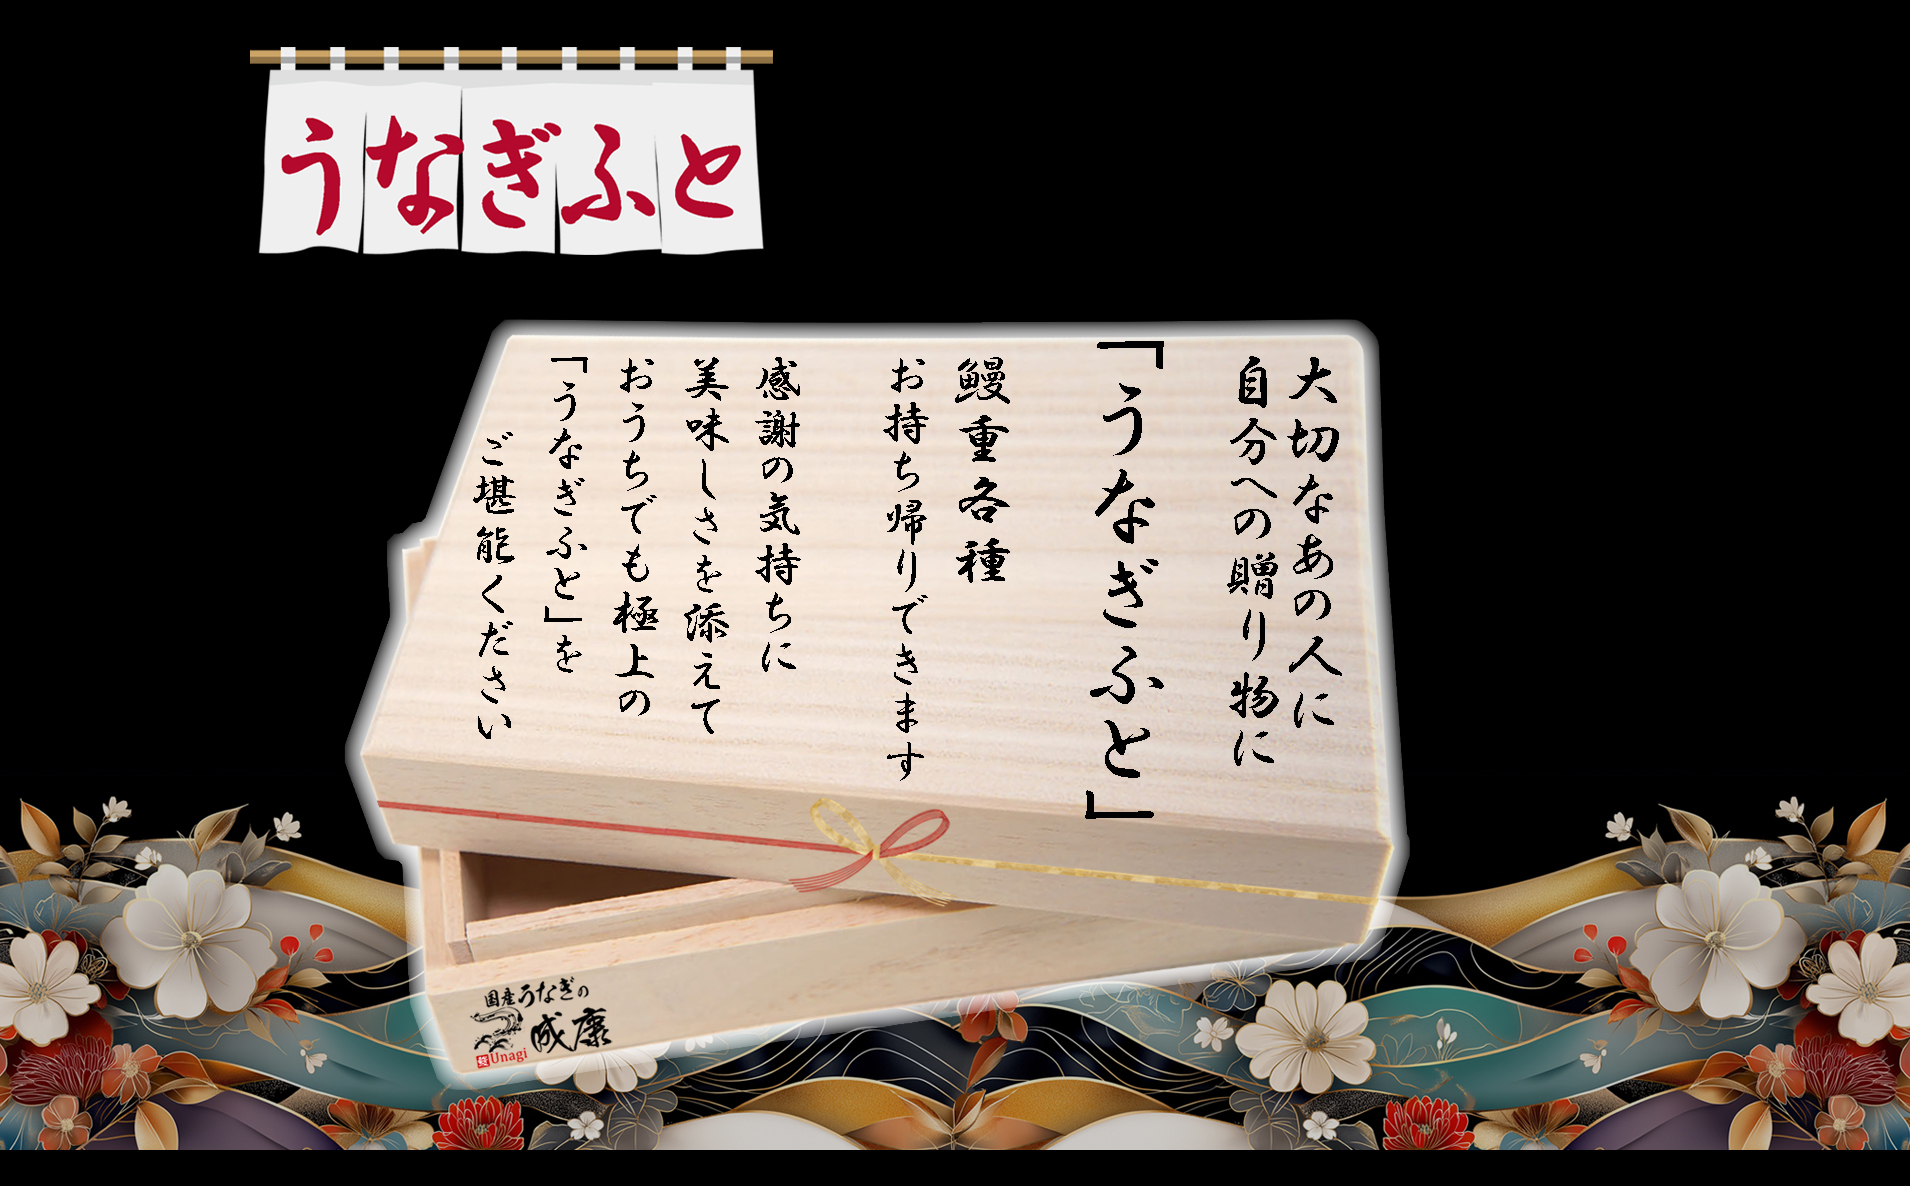 うなぎふと
大切なあの人に
自分への贈り物に
「うなぎふと」
鰻重各種
お持ち帰りできます
感謝の気持ちに
美味しさを添えて
おうちでも極上の
「うなぎふと」を
ご堪能ください
国産うなぎの
成康
Unagi